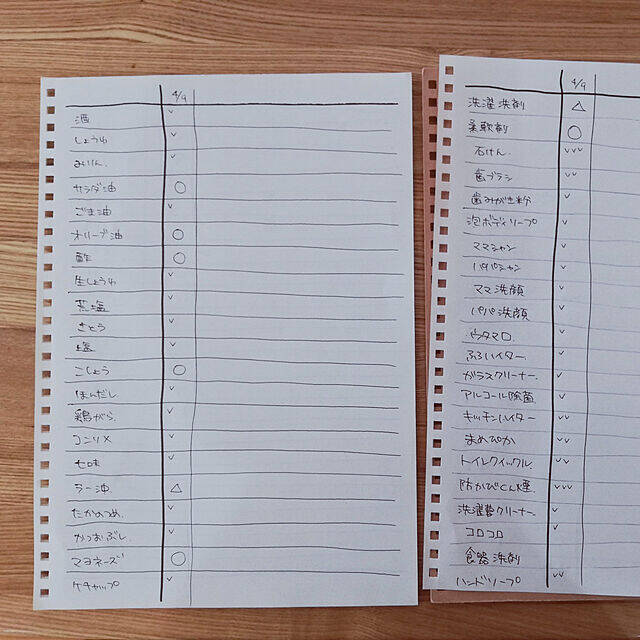 4/9
酒 ✓
しょうゆ ✓
みりん. ✓
サラダ油 ○
ごま油 ✓
オリーブ油 ○
酢 ○
生しょうゆ ✓
荒塩 ✓
さとう ✓
塩 ✓
こしょう ○
ほんだし ✓
鶏がら ✓
コンソメ ✓
七味 ✓
ラー油 △
たかのつめ. ✓
かつおぶし. ✓
マヨネーズ ○
ケチャップ ✓
4/9
洗濯洗剤 △
柔軟剤 ○
石けん. ✓✓✓
歯ブラシ ✓✓
歯みがき粉 ✓
泡ボディソープ ✓
ママシャン ✓
パパシャン ✓
ママ洗顔 ✓
パパ洗顔 ✓
ウタマロ ✓
ふろハイター ✓
ガラスクリーナー. ✓
アルコール除菌 ✓
キッチンハイター ✓✓
まめピカ ✓✓
トイレクイックル. ✓✓
防カビくん煙. ✓✓✓
洗濯槽クリーナー. ✓
コロコロ ✓
食器洗剤
ハンドソープ ✓✓